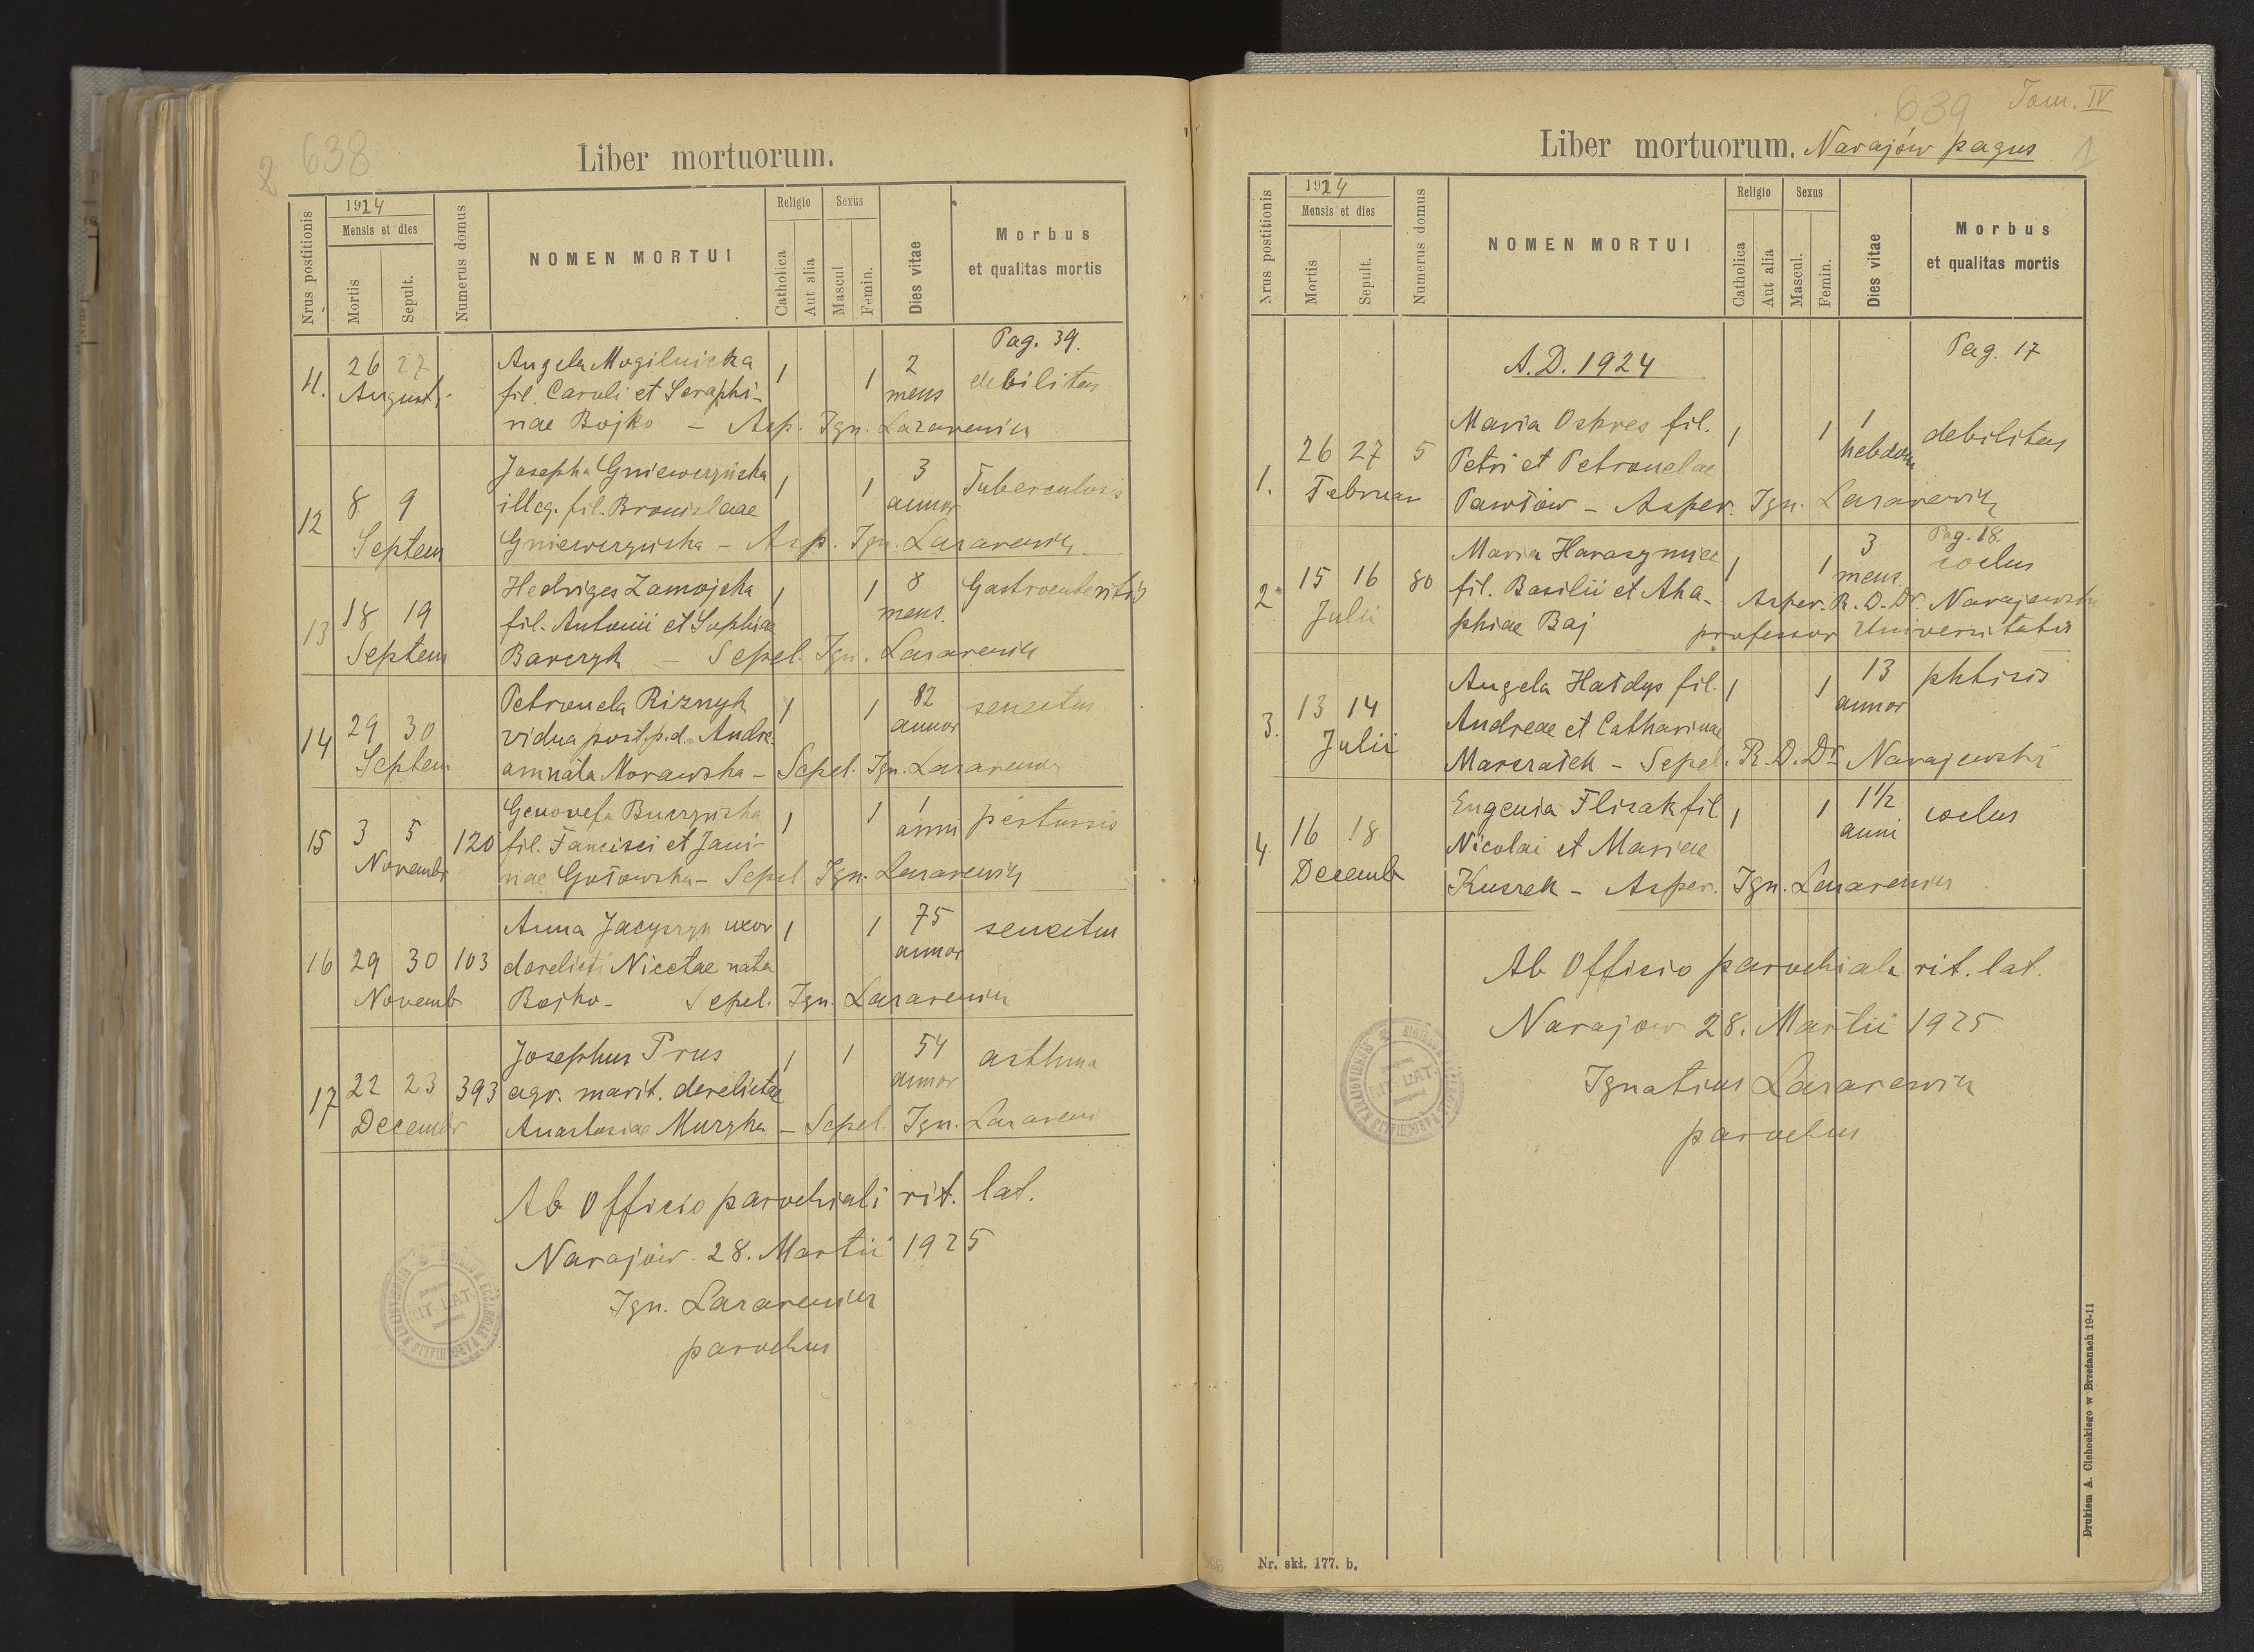 638
2
Liber mortuorum.
Nrus postitionis
1924
Mensis et dies
Mortis
Sepult.
Numerus domus
NOMEN MORTUI
Religio
Catholica
Aut alia
Sexus
Mascul.
Femin.
Dies vitae
Morbus
et qualitas mortis
Pag. 39.
11. 26 27 Angela Mogilnicka 1 1 2 debilitas
Augusti fil. Caroli et Seraphi- mens
nae Bojko – Asp. Ign. Lazarewicz
12 8 9 Josepha Gniewerzuska 1 1 3 Tuberculosis
illeg. fil. Bronislaae annor
Septem Gniewerzuska – Asp. Ign. Lazarewicz
13 18 19 Hedviges Zamojska 1 1 8 Gastroenteritis
fil. Antonii et Sophiae mens.
Septem Barczyk – Sepel. Ign. Lazarewicz
14 29 30 Petronela Riznyk 1 1 82 senectus
vidua post. p. d. Andre annor
Septem amnata Morawska – Sepel. Ign. Lazarewicz
15 3 5 120 Genovefa Buczynska 1 1 1 pertussis
fil. Fancisci et Jani- anni
Novembr nae Gołowska – Sepel Ign. Lazarewicz
16 29 30 103 Anna Jacyszyn uxor 1 1 75 senectus
derelicti Nicetae nata annor
Novemb Bojko – Sepel. Ign. Lazarewicz
17 22 23 393 Josephus Prus 1 1 54 asthma
agr. marit. derelictae annor
Decembr Anastasiae Muzyka – Sepel. Ign. Lazarewi
Ab Officio parochiali rit. lat.
Narajów 28. Martii 1925
Ign. Lazarewicz
parochus
RIT. LAT.
639
Tom. IV
Liber mortuorum. Narajów pagus
1
Nrus postitionis
1924
Mensis et dies
Mortis
Sepult.
Numerus domus
NOMEN MORTUI
Religio
Catholica
Aut alia
Sexus
Mascul.
Femin.
Dies vitae
Morbus
et qualitas mortis
A.D. 1924
Pag. 17
1. 26 27 5 Maria Oskres fil. 1 1 1 debilitas
Petri et Petronelae hebdom
Februar Pawłów – Asper. Ign. Lazarewicz
Pag. 18.
2 15 16 80 Maria Harasymice 1 1 3 coelus
fil. Basilii et Aha- mens. Asper. R. D. Dr Narajewski
Julii phiae Baj professor Universitatis
3. 13 14 Angela Hałdys fil. 1 1 13 phtisis
Andreae et Catharinae annor
Julii Marszałek – Sepel. R. D. Dr Narajewski
4. 16 18 Eugenia Flisak fil 1 1 1½ coelus
Nicolai et Mariae anni
Decemb Kuszek – Asper. Ign. Lazarewicz
Ab Officio parochiali rit. lat.
Narajow 28. Martii 1925
Ignatius Lazarewicz
parochus
RIT. LAT.
Nr. skł. 177. b.
Drukiem A. Cichockiego w Brzeżanach 19-11